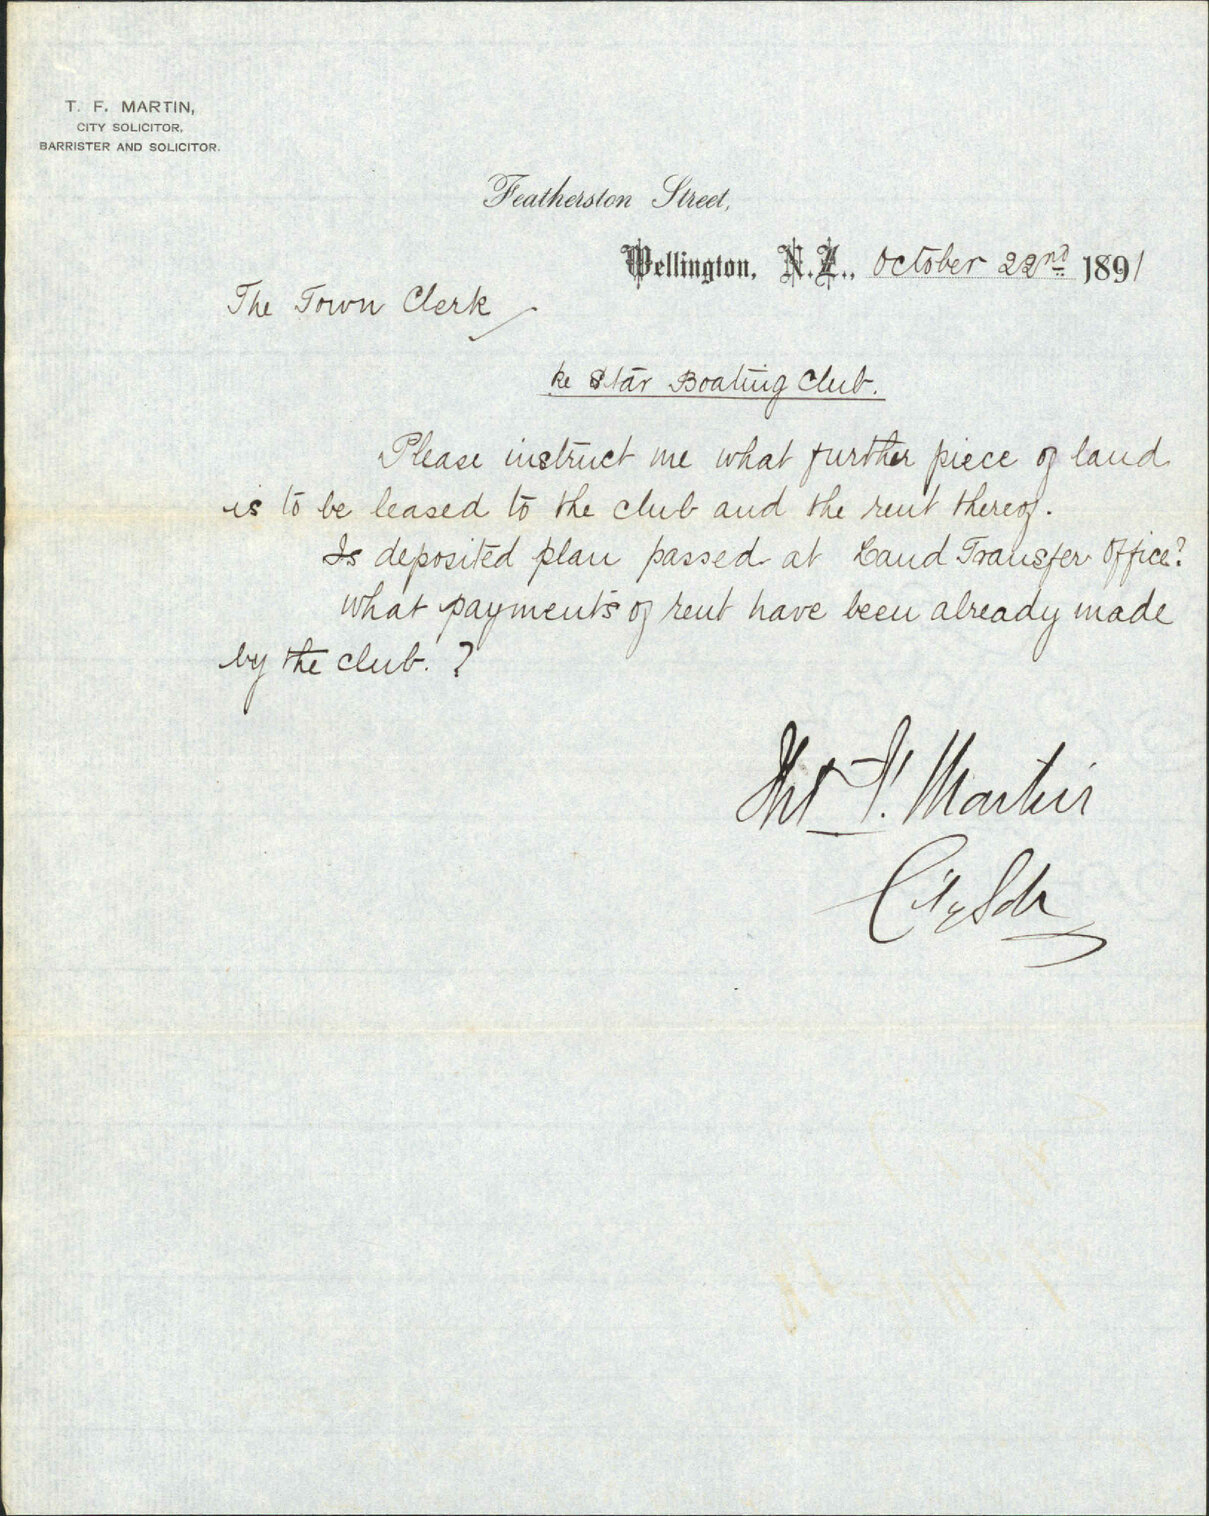 T. F. MARTIN,
CITY SOLICITOR,
BARRISTER AND SOLICITOR.
Featherston Street,
Wellington, N.Z., October 22nd 1891
The Town Clerk
Re Star Boating Club.
Please instruct me what further piece of land
is to be leased to the club and the rent thereof.
Is deposited plan passed at Land Transfer Office?
What payments of rent have been already made
by the club. ?
Thos F. Martin
City Solr